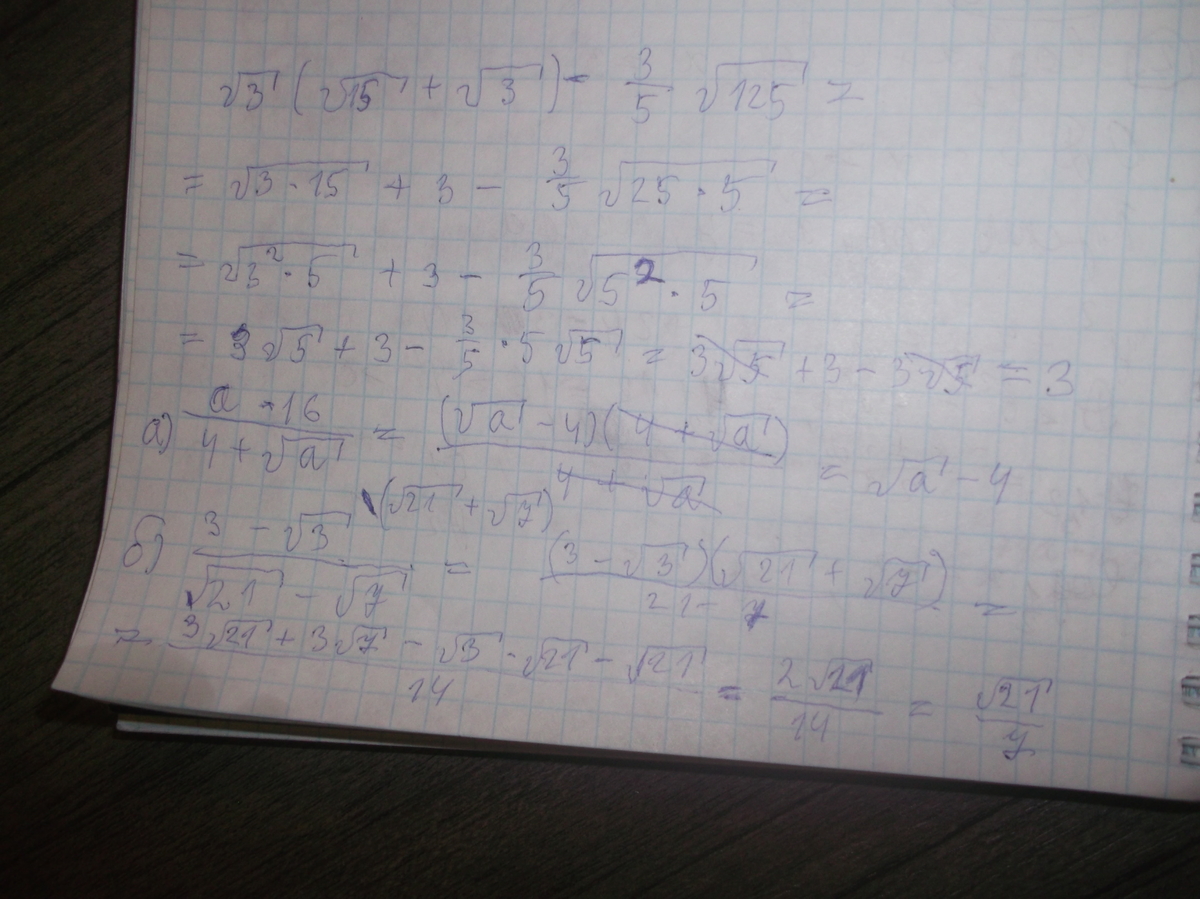 √3 (√15 + √3) - 3/5 √125 =
= √(3·15) + 3 - 3/5 √(25·5) =
= √(3²·5) + 3 - 3/5 √(5²·5) =
= 3√5 + 3 - 3/5 · 5√5 = 3√5 + 3 - 3√5 = 3
а) (a - 16)/(4 + √a) = (√a - 4)(4 + √a)/(4 + √a) = √a - 4
б) (3 - √3)/(√21 - √7) \(√21 + √7) = (3 - √3)(√21 + √7)/(21 - 7) =
= (3√21 + 3√7 - √3 · √21 - √21)/14 = 2√21/14 = √21/7